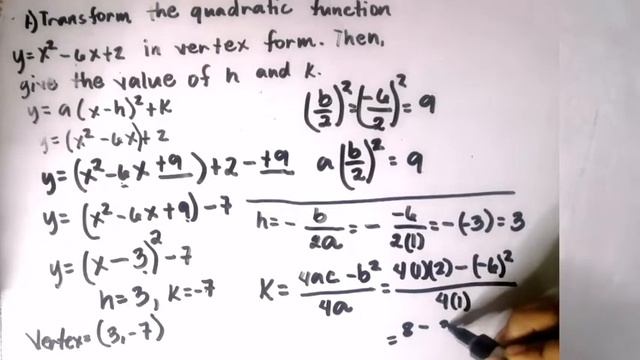 1.) Transform the quadratic function
y = x² - 6x + 2 in vertex form. Then,
give the value of h and k.
y = a(x-h)² + k
y = (x² - 6x) + 2
y = (x² - 6x + 9) + 2 - +9
y = (x² - 6x + 9) - 7
y = (x - 3)² - 7
h = 3, k = -7
Vertex = (3, -7)
(b/2)² = (-6/2)² = 9
a(b/2)² = 9
h = - b/2a = - -6/2(1) = -(-3) = 3
K = 4ac - b²/4a = 4(1)(2) - (-6)²/4(1)
= 8 -